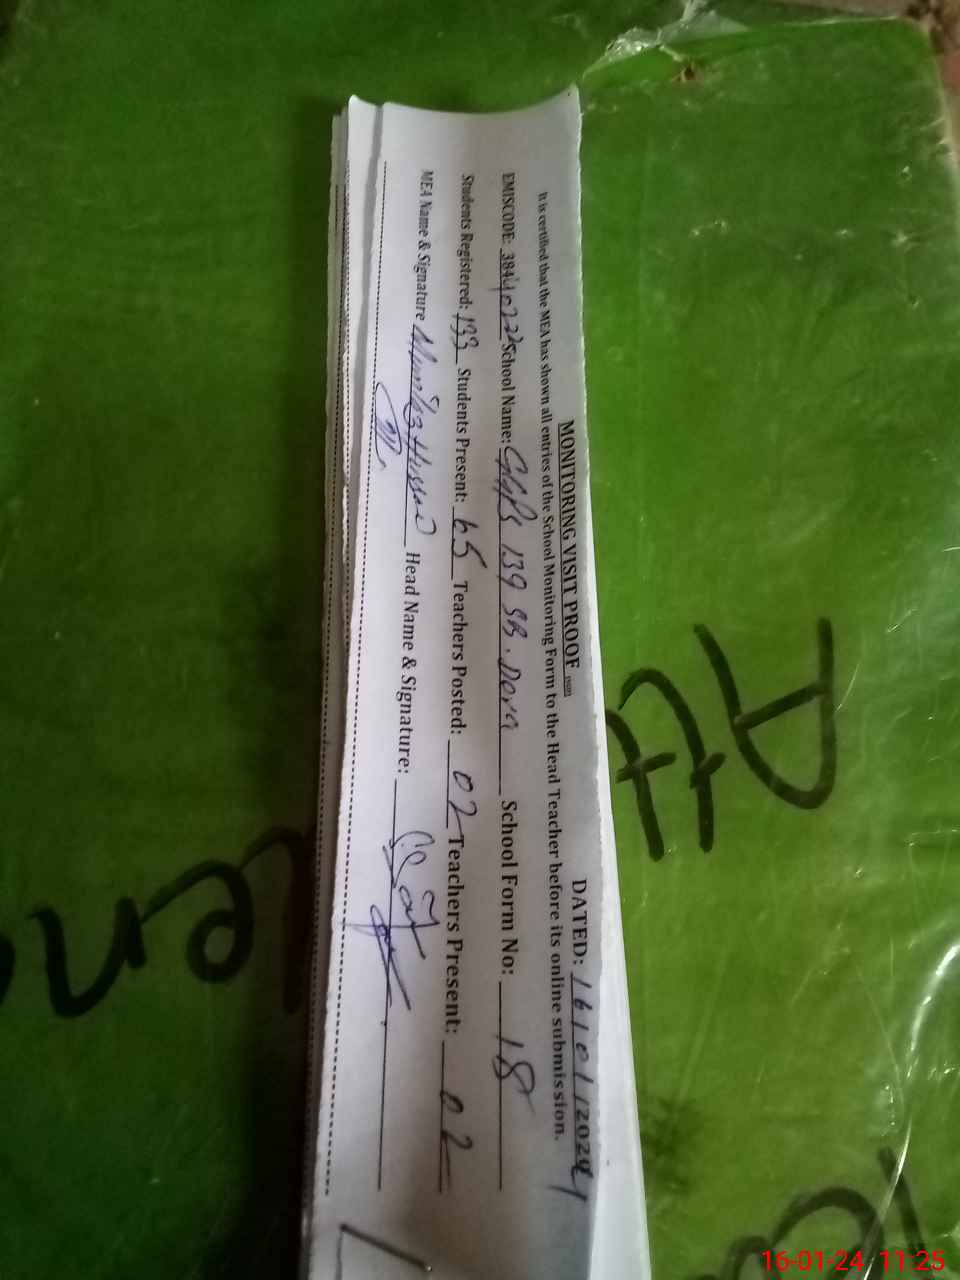 MONITORING VISIT PROOF
DATED: 16/01/2024
It is certified that the MEA has shown all entries of the School Monitoring Form to the Head Teacher before its online submission.
EMISCODE: 38440225 School Name: GGPS 139 SB. Dera School Form No: 18
Students Registered: 133 Students Present: 65 Teachers Posted: 02 Teachers Present: 02
MEA Name & Signature Hussain Head Name & Signature:
Att
16-01-24 11:25